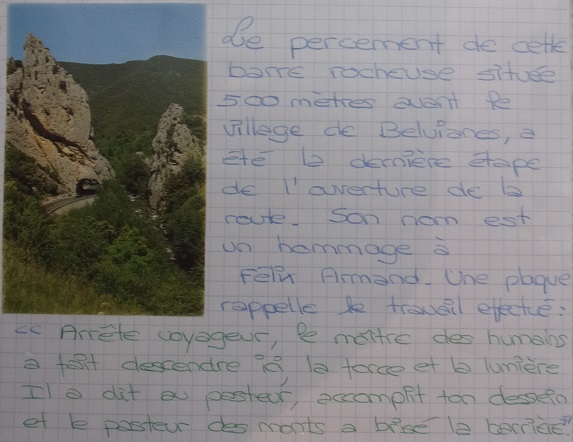 Le percement de cette
barre rocheuse située
500 mètres avant le
village de Belvianes, a
été la dernière étape
de l'ouverture de la
route. Son nom est
un hommage à
Félix Armand. Une plaque
rappelle le travail effectué :
<< Arrête voyageur, le maître des humains
a fait descendre ici la force et la lumière
Il a dit au pasteur, accomplit ton dessein
et le pasteur des monts a brisé la barrière"